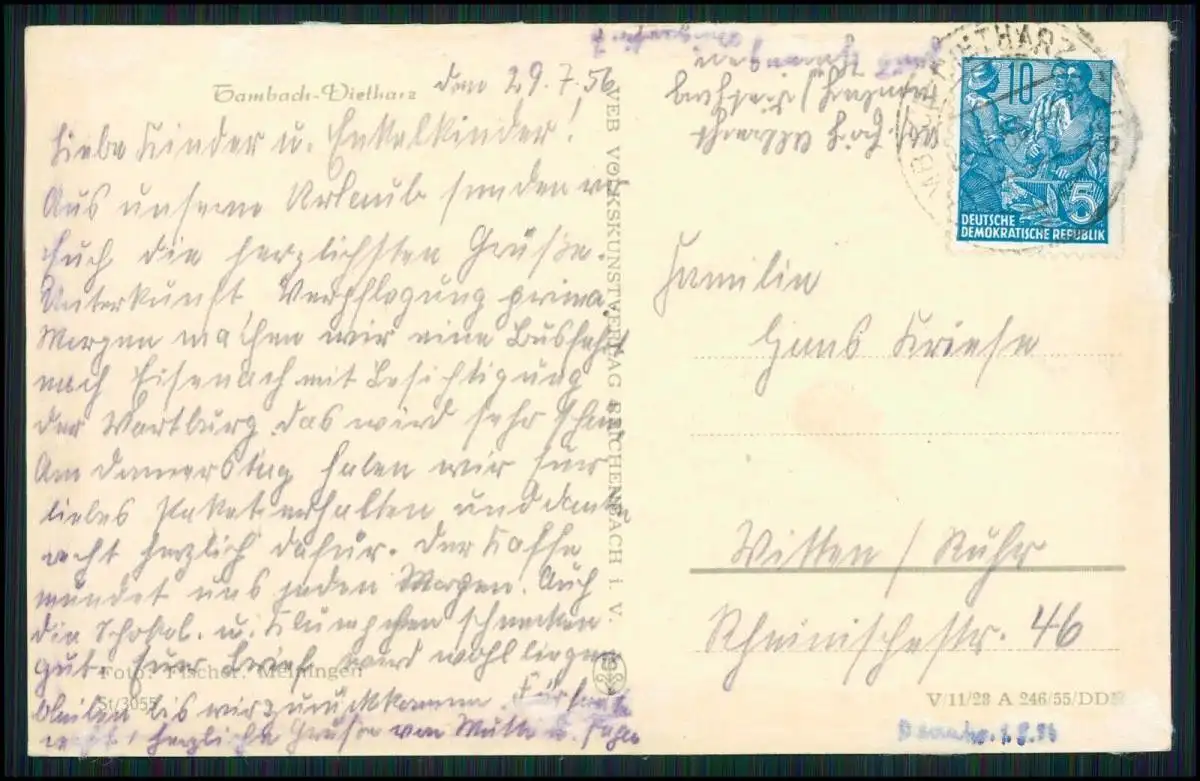 Tambach-Dietharz
den 29.7.56
Liebe Kinder u. Enkelkinder!
Aus unserem Urlaub senden wir
Euch die herzlichsten Grüße.
Unterkunft, Verpflegung prima.
Morgen machen wir eine Busfahrt
nach Eisenach mit Besichtigung
der Wartburg, das wird sehr schön
Am Donnerstag haben wir Euer
liebes Paket erhalten und danken
recht herzlich dafür. Der Kaffe
mundet uns jeden Morgen. Auch
die Schokol. u. Klümpchen schmecken
gut. Euer Brief wird wohl liegen
bleiben bis wir zurückkommen. Für heute
herzliche Grüße von Mutti u.
Foto: Fischer, Meiningen
St/3055
VEB VOLKSKUNSTVERLAG REICHENBACH i. V.
10
5
DEUTSCHE
DEMOKRATISCHE REPUBLIK
Familie
Hans Kriese
Witten / Ruhr
Rheinischestr. 46
V/11/28 A 246/55/DDR